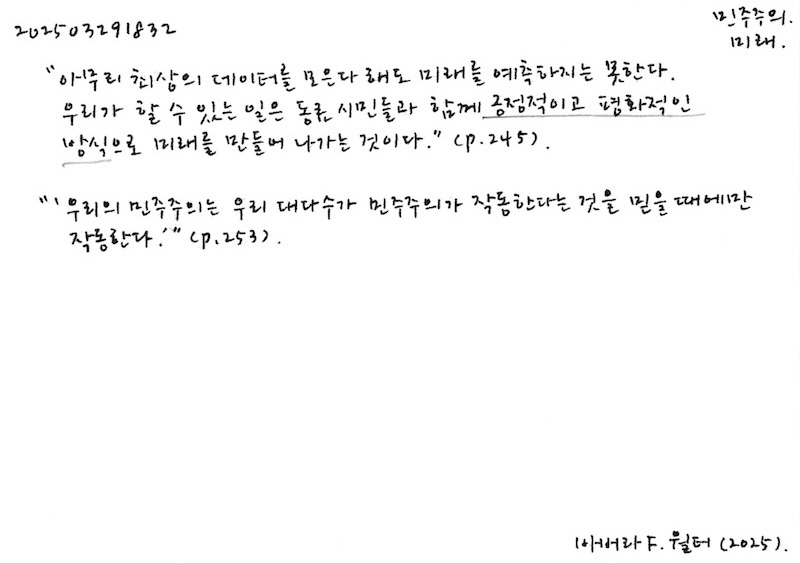 202503291832
민주주의.
미래.
"아무리 최상의 데이터를 모은다 해도 미래를 예측하지는 못한다.
우리가 할 수 있는 일은 동료 시민들과 함께 긍정적이고 평화적인
방식으로 미래를 만들어 나가는 것이다." (p.245).
"'우리의 민주주의는 우리 대다수가 민주주의가 작동한다는 것을 믿을 때에만
작동한다.'" (p.253).
바버라 F. 월터 (2025).